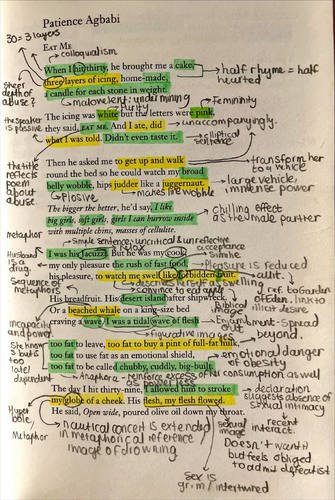 Patience Agbabi
30 = 3 layers
EAT ME
colloquialism
When I hit thirty, he brought me a cake,
three layers of icing, home-made,
a candle for each stone in weight.
half rhyme = half
hearted
sheer
depth of
abuse?
malovelent: undermining
Purity
Femininity
The icing was white but the letters were pink,
they said, EAT ME. And I ate, did
what I was told. Didn't even taste it.
the speaker
is passive
unaccompanyingly.
elliptical
sentence
Then he asked me to get up and walk
round the bed so he could watch my broad
belly wobble, hips judder like a juggernaut.
the title
reflects
poem
about
abuse.
transform her
to a vehicle
large vehicle,
immense power
Plosive
makes me wobble
The bigger the better, he'd say, I like
big girls, soft girls, girls I can burrow inside
with multiple chins, masses of cellulite.
chilling effect
as the male partner
metaphor
simple sentence: uncritical & unreflective
acceptance
relax
simile
I was his Jacuzzi. But he was my cook,
my only pleasure the rush of fast food,
his pleasure, to watch me swell like forbidden fruit.
Husband
is a
drug.
Pleasure is reduced
guilt.
Sequence of
metaphors
describes herself as swelling
connote to adult
ref. to Garden
of Eden. link to
illicit desire
Biblical
image
His breadfruit. His desert island after shipwreck.
Or a beached whale on a king-size bed
craving a wave. I was a tidal wave of flesh
incapacity
and power.
Enjambment - spread
beyond
figurative image
too fat to leave, too fat to buy a pint of full-fat milk,
too fat to use fat as an emotional shield,
too fat to be called chubby, cuddly, big-built.
emotional danger
of obesity
Anaphora reinforce excess of consumption as well
as power less
The day I hit thirty-nine, I allowed him to stroke
my globe of a cheek. His flesh, my flesh flowed.
He said, Open wide, poured olive oil down my throat.
declaration
suggests absence of
sexual intimacy
Hyper
bole,
Metaphor
nautical conceit is extended
in metaphorical reference
image of drowning
sexual
image
recent
interact.
Doesn't want
but feels obliged
to admit defeatist
sex is
grim / intertwined